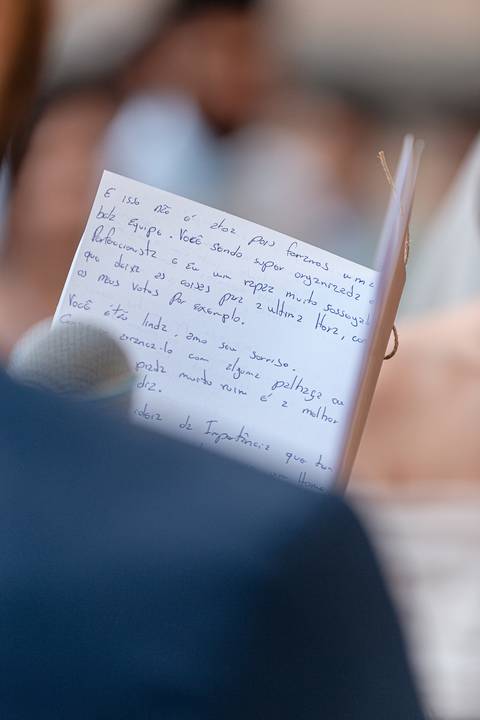 E isso não é atoa pois formamos uma
bela Equipe. Você sendo super organizada e
Perfeccionista e eu um rapaz muito sossegado
que deixa as coisas pra a ultima Hora, com
os meus votos por exemplo.
Você está linda, amo seu sorriso.
arranca-lo com alguma palhaça ou
piada muito ruim é a melhor
diz.
ideia da Importância que